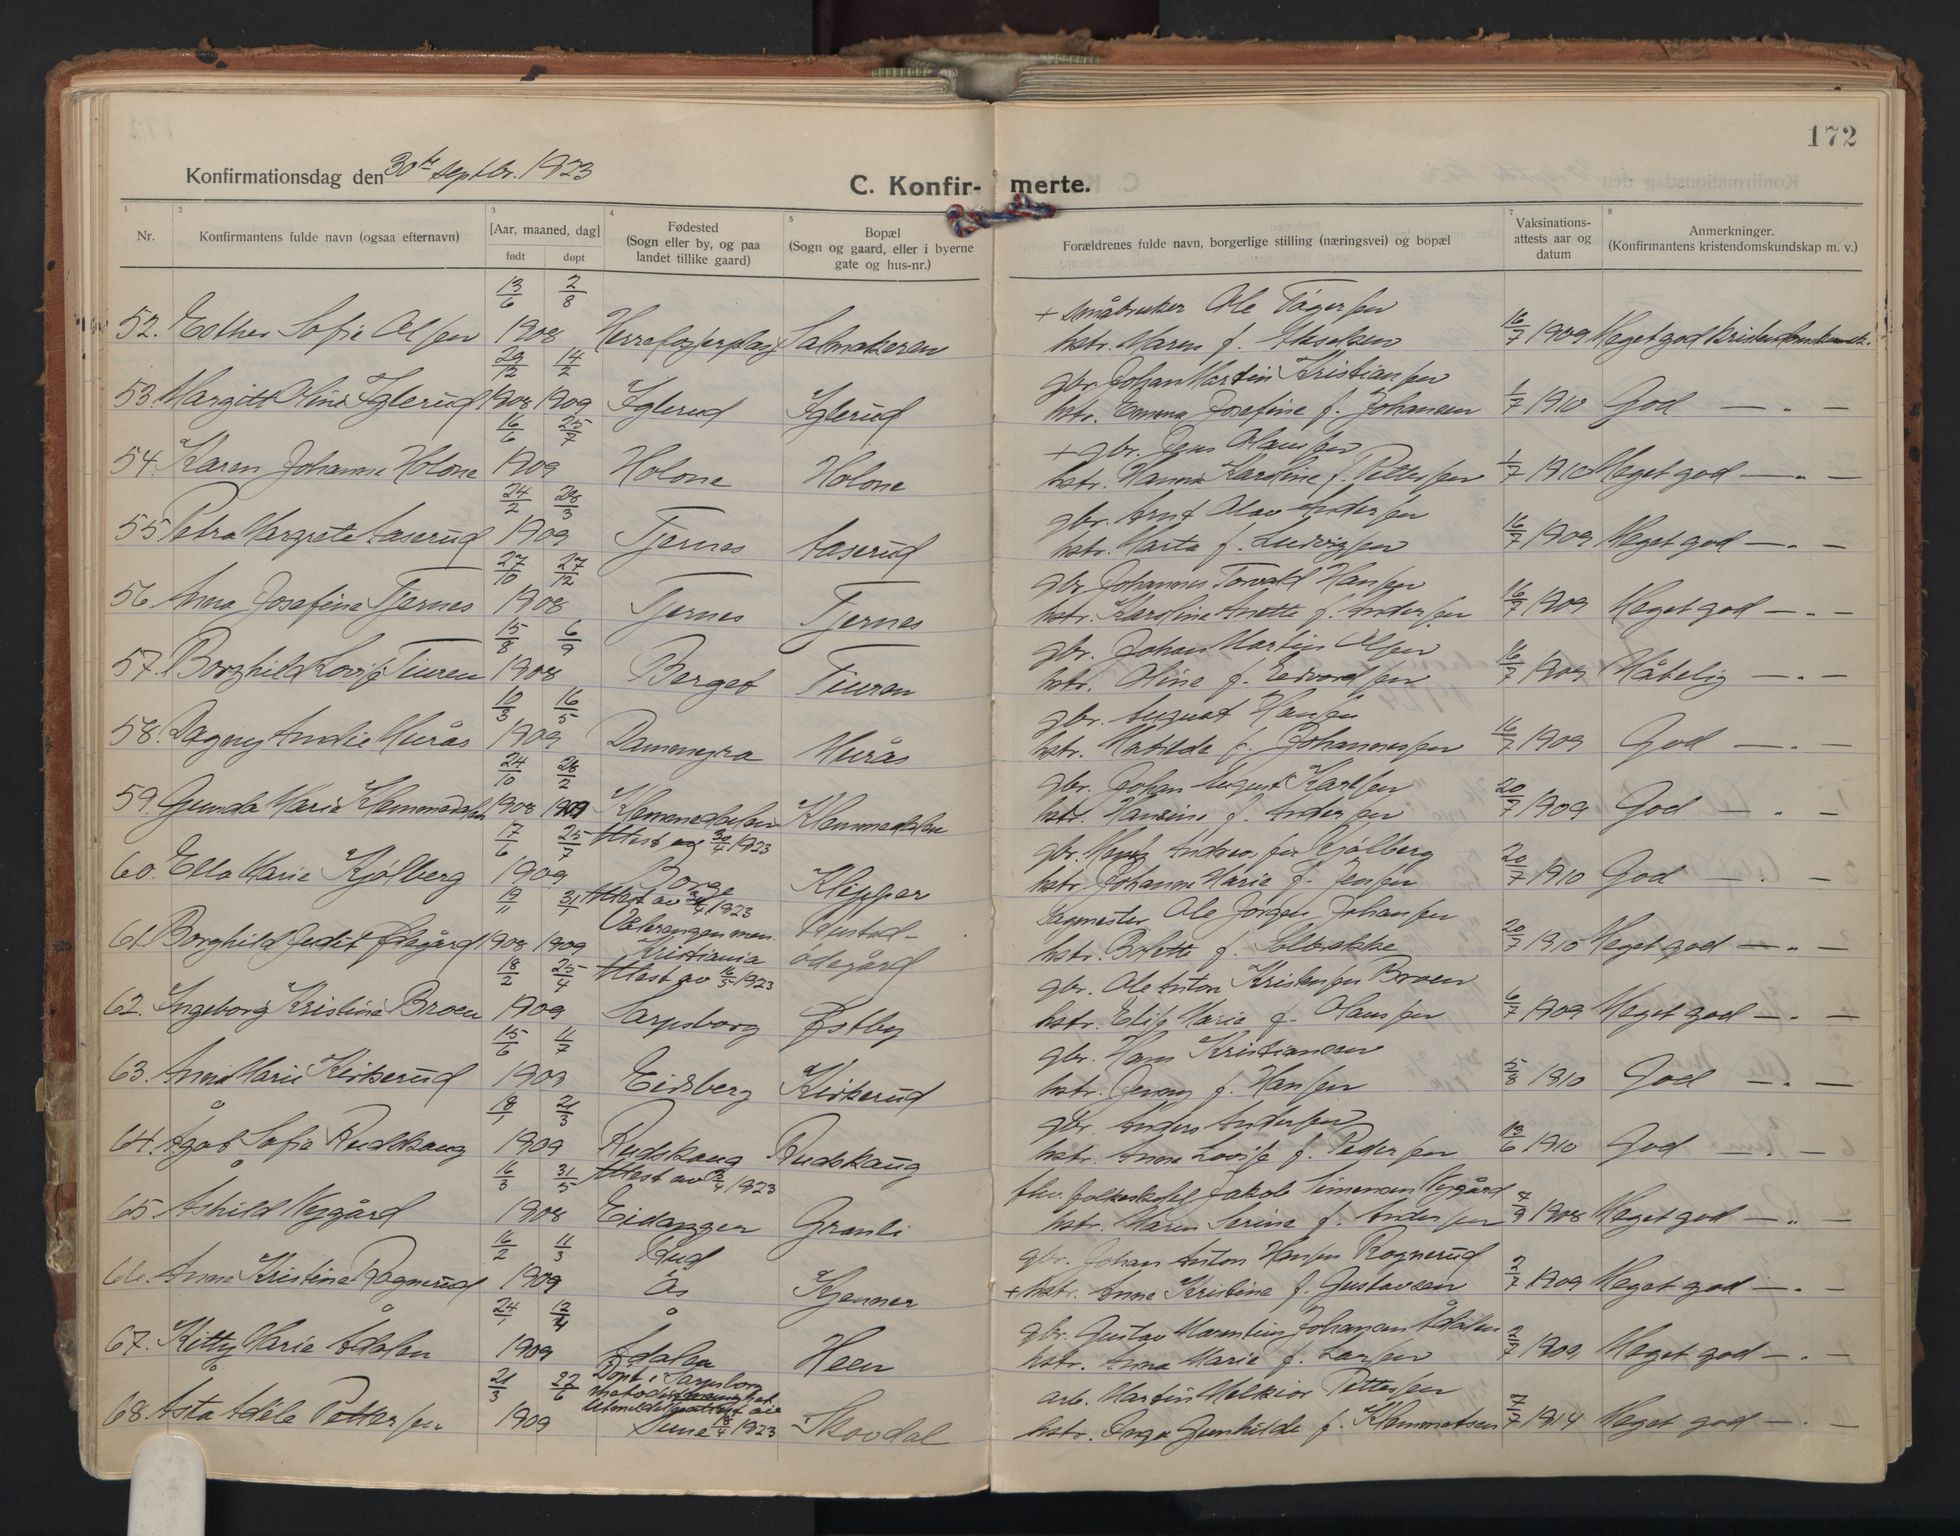 172
Konfirmationsdag den 30te septbr. 1923
C. Konfir- merte.
1 2 3 4 5 7 8
Nr.
Konfirmantens fulde navn (ogsaa efternavn)
[Aar, maaned, dag]
født døpt
Fødested
(Sogn eller by, og paa
landet tillike gaard)
Bopæl
(Sogn og gaard, eller i byerne
gate og hus-nr.)
Forældrenes fulde navn, borgerlige stilling (næringsvei) og bopæl
Vaksinations-
attests aar og
datum
Anmerkninger.
(Konfirmantens kristendomskundskap m. v.)
13/6 2/8 + småbruker Ole
52. Esther Sofie Olsen 1908 hstr. Maren f. 16/7 1909 Meget god
29/12 14/2 gbr. Johan Martin Kristiansen
53. Margitt Oline Iglerud 1908 1909 Iglerud Iglerud hstr. Emma Josefine f. Johansen 1/7 1910 God — " —
16/6 25/7 + gbr. Jens Hansen
54. Karen Johanne Holone 1909 Holone Holone hstr. Hanna Karoline f. Pettersen 1/7 1910 Meget god — " —
24/2 28/3 gbr. Arnt Olav Andersen
55 Petra Margrete Aaserud 1909 Tjernes Aaserud hstr. Marta f. Ludvigsen 16/7 1909 Meget god — " —
27/10 27/12 gbr. Johannes Torvald Hansen
56. Anna Josefine Tjernes 1908 Tjernes Tjernes hstr. Karoline Anette f. Andersen 16/7 1909 Meget god — " —
15/8 6/9 gbr. Johan Martin Olsen
57. Borghild Lovise Tiuren 1908 Berget Tiuren hstr. Oline f. Edvardsen 16/7 1909 Måtelig — " —
10/3 16/5 gbr. August Hansen
58. Dagny Andie Murås 1909 Dammyra Murås hstr. Matilde f. Johannessen 16/7 1909 God — " —
24/10 28/2 gbr. Johan August Karlsen
59. Gunda Marie Klemmedalen 1908 1909 Klemmedalen Klemmedalen hstr. Hansine f. Andersen 20/7 1909 God — " —
17/6 25/7 Attest av 30/4 1923 gbr. Andreas Kjølberg
60. Ella Marie Kjølberg 1909 Borge Klypper hstr. Johanne Marie f. Jensen 20/7 1910 God — " —
31/1 Attest av 1923 Sagmester Ole Jørgen Johansen
61. Borghild Judit Ødegård 1908 1909 Vålerengen men. Kristiania ødegård hstr. Bolette f. Solbrække 20/7 1910 Meget god — " —
18/2 25/4 Attest av 16/5 1923 gbr. Ole Anton Kristensen Broen
62. Ingeborg Kristine Broen 1909 Sarpsborg Østby hstr. Elise Marie f. Hansen 6/7 1909 Meget god — " —
15/6 11/7 gbr. Hans Kristiansen
63. Anna Marie Kirkerud 1909 Eidsberg Kirkerud hstr. Jenny f. Hansen 5/8 1910 God — " —
18/1 21/3 gbr. Anders Andersen
64. Ågot Sofie Rudskaug 1909 Rudskaug Rudskaug hstr. Anna Lovise f. Pedersen 13/6 1910 God — " —
16/3 31/5 Attest av 1923 Jakob Simensen Nygård
65. Åshild Nygård 1908 Eidanger Granli hstr. Maren Serine f. Andersen 4/9 1908 Meget god — " —
16/2 11/3 Rud gbr. Johan Anton Hansen Rognerud
66. Anne Kristine Rognerud 1909 Ås Kjenner + hstr. Anne Kristine f. Gustavsen 2/7 1909 Meget god — " —
24/1 12/4 gbr. Gustav Marentius Johansen Ådalen
67. Kitty Marie Ådalen 1909 Ådalen Heen hstr. Anna Marie f. Larsen 2/7 1909 Meget god — " —
21/3 27/6 Døpt i Sarpsborg arb. Martin Melkior Pettersen
68. Åsta Adele Pettersen 1909 1923 Skovdal hstr. Inga Gunhilde f. Klemmetsen 7/7 1914 Meget god — " —